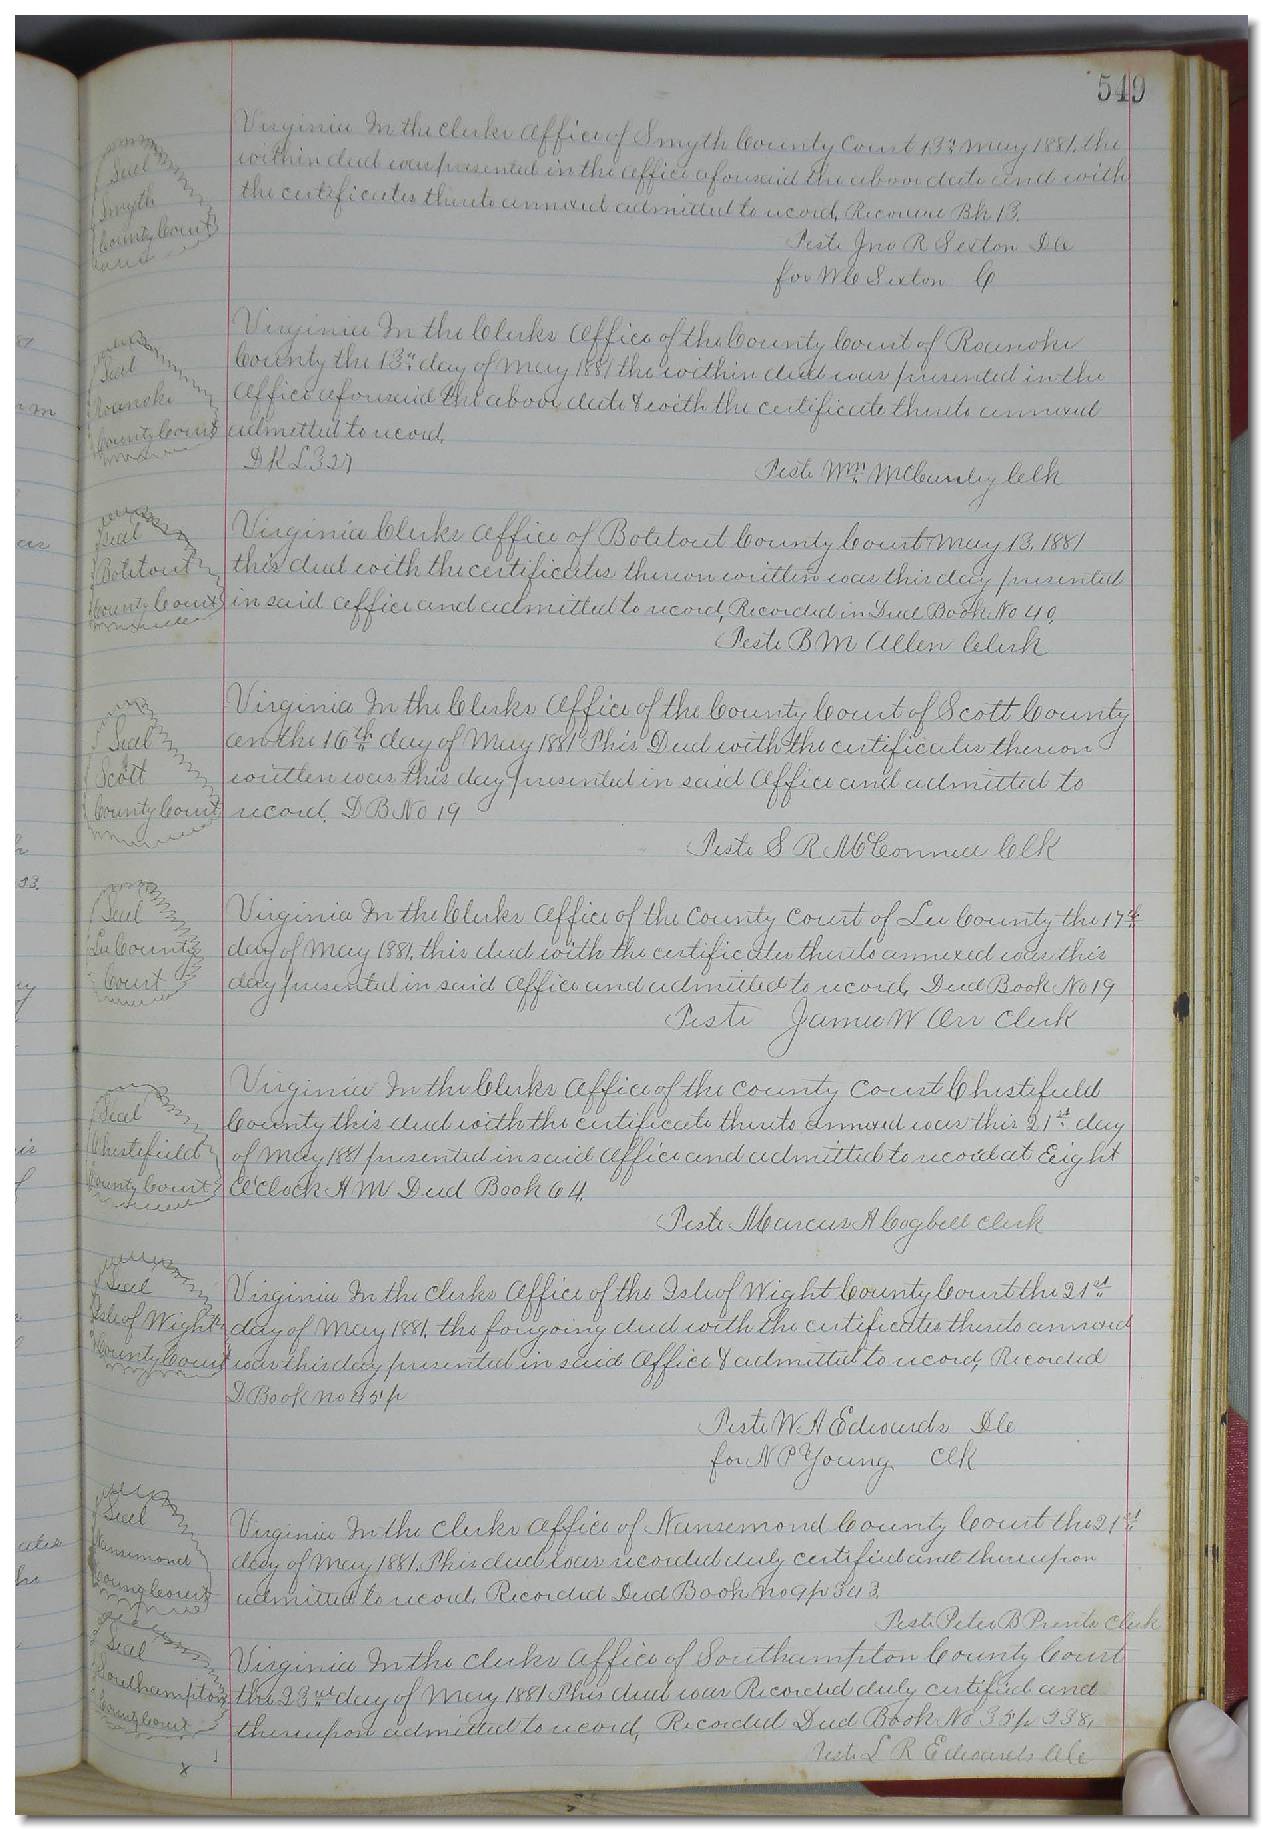 549
Seal
Smyth
County Court
Virginia In the Clerks Office of Smyth County Court 13th May 1881. the
within deed was presented in the office aforesaid the above date and with
the certificates thereto annexed admitted to record,
Teste Jno R Sexton DC
for W C Sexton C
Seal
Roanoke
County Court
Virginia In the Clerks Office of the County Court of Roanoke
County the 13th day of May 1881 the within deed was presented in the
Office aforesaid the above date & with the certificate thereto annexed
admitted to record,
327
Teste Wm McCauley Clk
Seal
Botetout
County Court
Virginia Clerks Office of Botetout County Court May 13, 1881
this deed with the certificates thereon written was this day presented
in said office and admitted to record, Recorded in Deed Book No 40.
Teste B M Allen Clerk
Seal
Scott
County Court
Virginia In the Clerks Office of the County Court of Scott County
on the 16th day of May 1881 This Deed with the certificates thereon
written was this day presented in said Office and admitted to
record. D B No 19
Teste S R McConnell Clk
Seal
Lee County
Court
Virginia In the Clerks Office of the County Court of Lee County the 17th
day of May 1881, this deed with the certificates thereto annexed was this
day presented in said Office and admitted to record, Deed Book No 19
Teste James W Orr Clerk
Seal
Chestefield
County Court
Virginia In the Clerks Office of the County Court Chestefield
County this deed with the certificate thereto annexed was this 21st day
of May 1881 presented in said office and admitted to record at Eight
O'Clock A M Deed Book 64.
Teste Marcus A Cogbill Clerk
Seal
Isle of Wight
County Court
Virginia In the Clerks Office of the Isle of Wight County Court the 21st
day of May 1881, the forgoing deed with the certificates thereto annexed
was this day presented in said Office & admitted to record, Recorded
D Book no 45 p
Teste W A Edwards DC
for N P Young Clk
Seal
Nansemond
County Court
Virginia In the Clerks Office of Nansemond County Court the 21st
day of May 1881. This deed was recorded duly certified and thereupon
admitted to record, Recorded Deed Book no 9 p 343.
Teste Peter B Prentis Clerk
Seal
Southampton
County Court
Virginia In the Clerks Office of Southampton County Court
the 23rd day of May 1881 This deed was Recorded duly certified and
thereupon admitted to record, Recorded Deed Book No 35 p 338,
Teste L R Edwards Clc
x